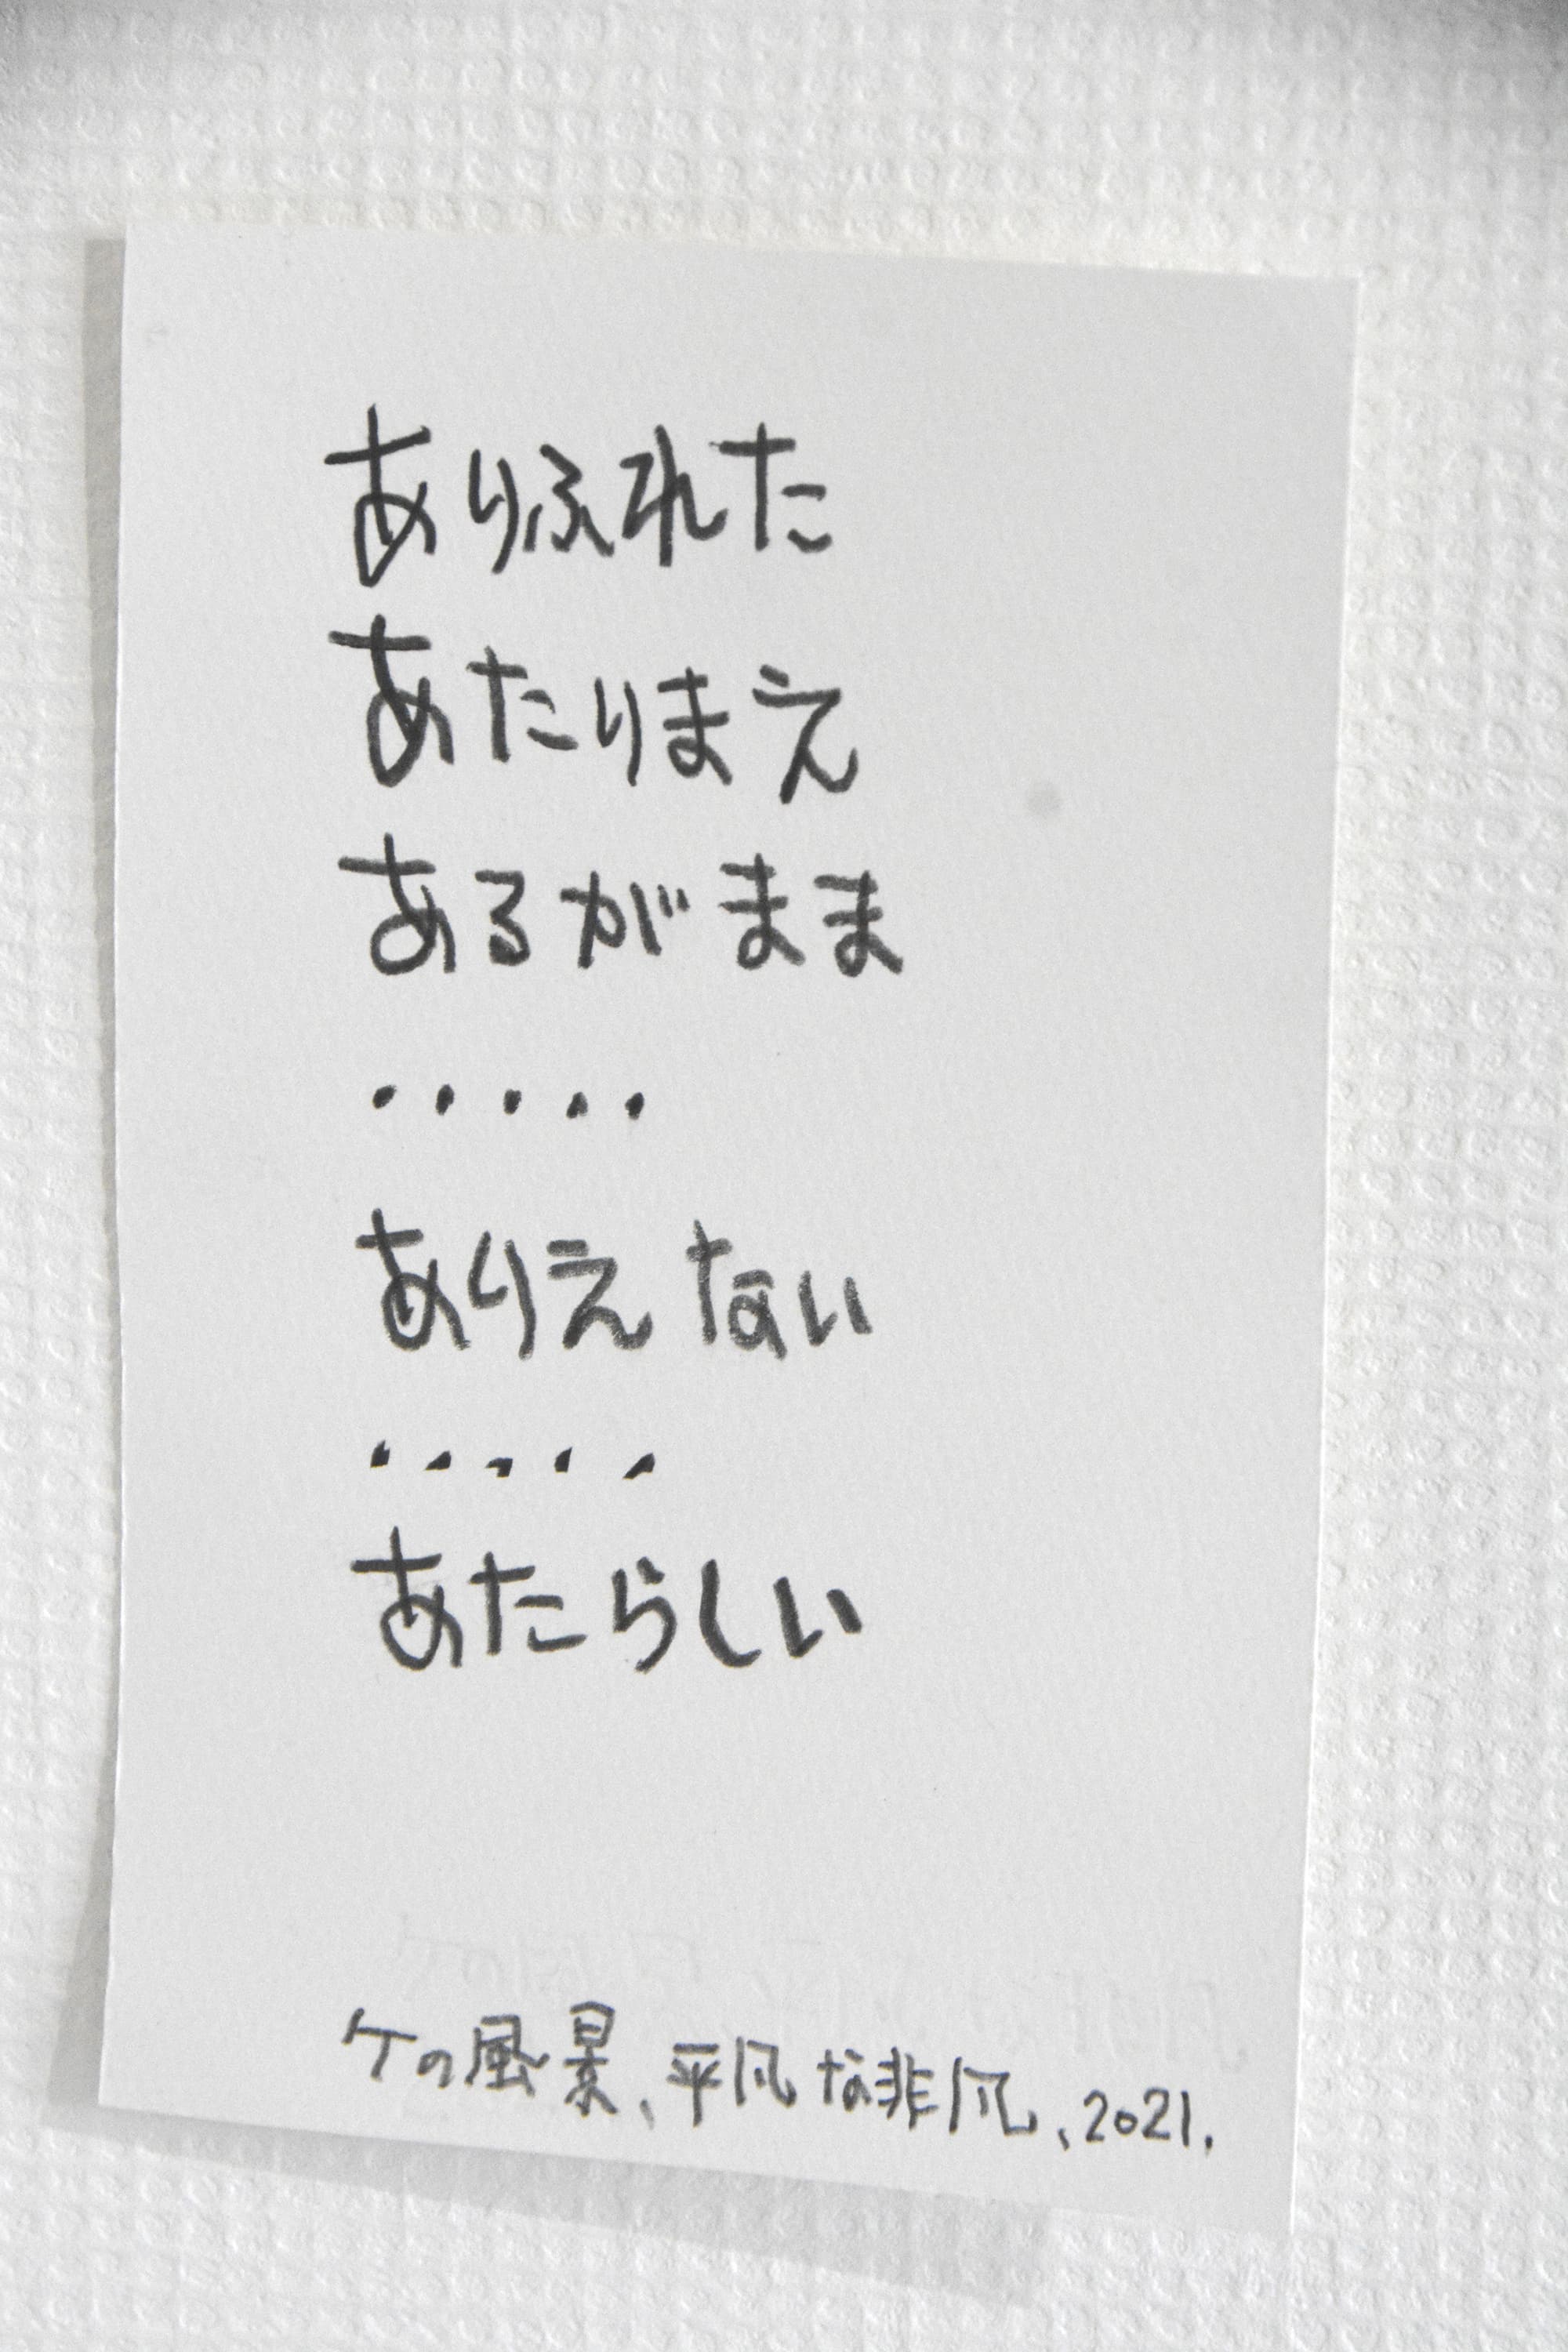 ありふれた
あたりまえ
あるがまま
・・・・・
ありえない
・・・・・
あたらしい
ケの風景、平凡な非凡、2021.